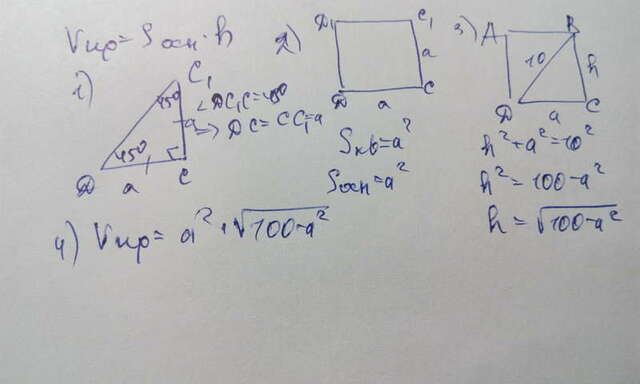 Vпр = Sосн · h
1)
C₁
45°
∠DC₁C = 45°
a
⇒ DC = CC₁ = a
45°
D a C
2)
D₁ C₁
a
D a C
Sкв = a²
Sосн = a²
3)
A B
10 h
D a C
h² + a² = 10²
h² = 100 - a²
h = √100 - a²
4) Vпр = a² · √100 - a²